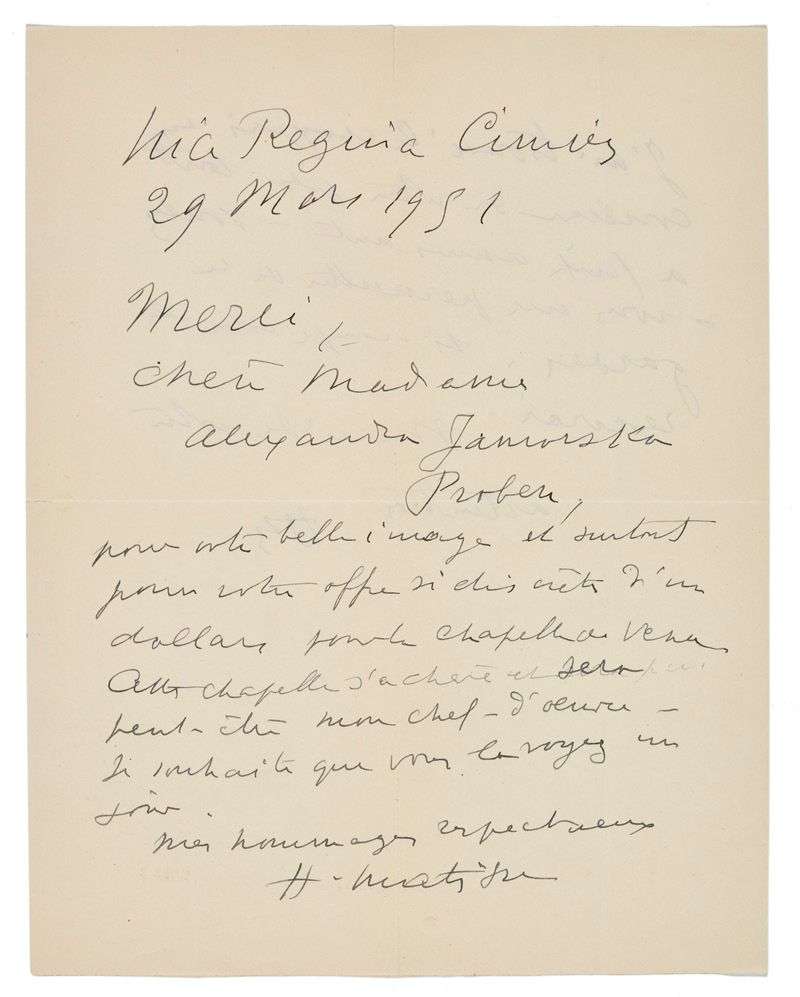 Regina Cimiez
29 Mars 1951
Merci,
chère Madame
Alexandra
Proben,
pour votre belle image et surtout
pour votre offre si discrète d'un
dollar, pour la chapelle de Vence
Cette chapelle s'achève et sera
peut-être mon chef-d'oeuvre -
Je souhaite que vous la voyez un
jour.
mes hommages respectueux
H. Matisse